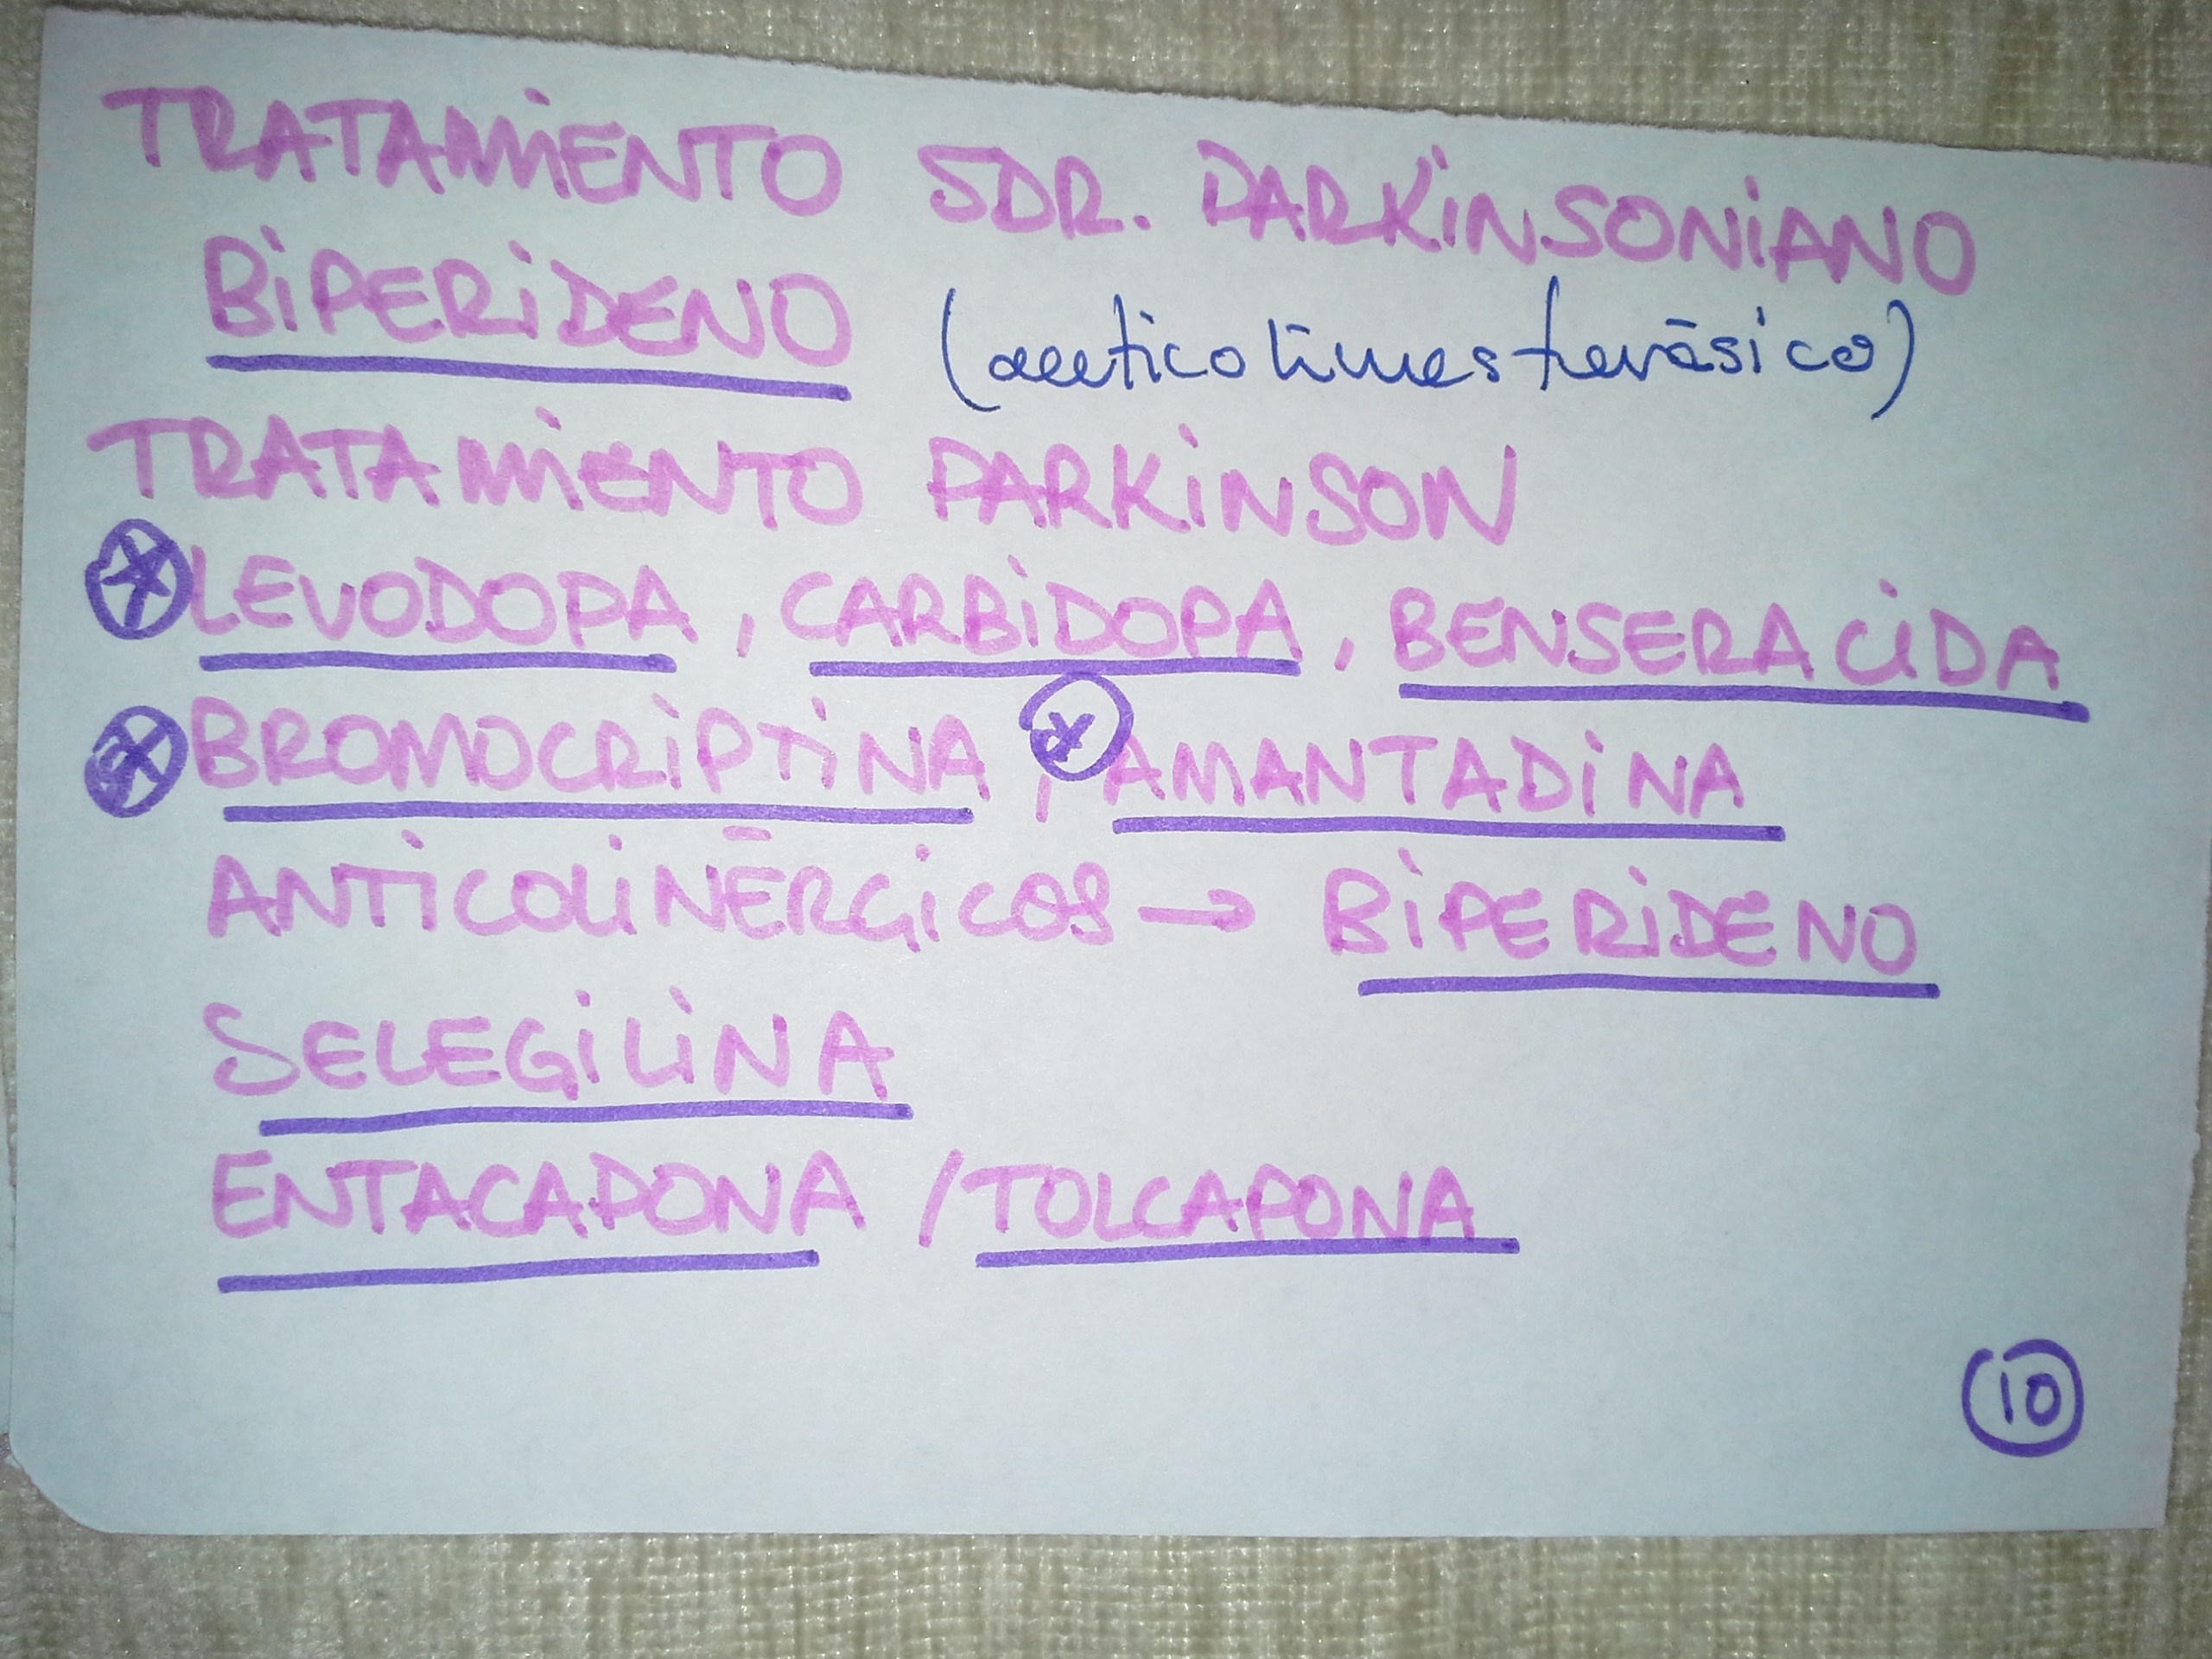 TRATAMIENTO SDR. PARKINSONIANO
BIPERIDENO (anticolinesterásico)
TRATAMIENTO PARKINSON
LEVODOPA, CARBIDOPA, BENSERACIDA
BROMOCRIPTINA, AMANTADINA
ANTICOLINÉRGICOS → BIPERIDENO
SELEGILINA
ENTACAPONA / TOLCAPONA
10